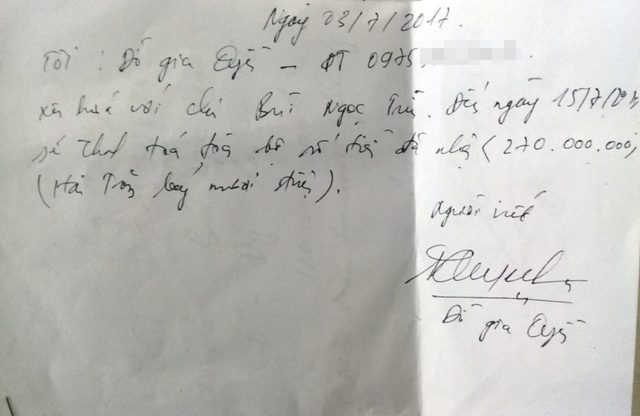 Ngày 03/7/2017.
Tôi : Đỗ gia – ĐT 0975.
xin hứa với chú Bùi Ngọc. Đến ngày 15/7/2017
sẽ thanh toán toàn bộ số tiền đã nhận (270.000.000,
(Hai Trăm bảy mươi triệu).
Người viết
Đỗ gia